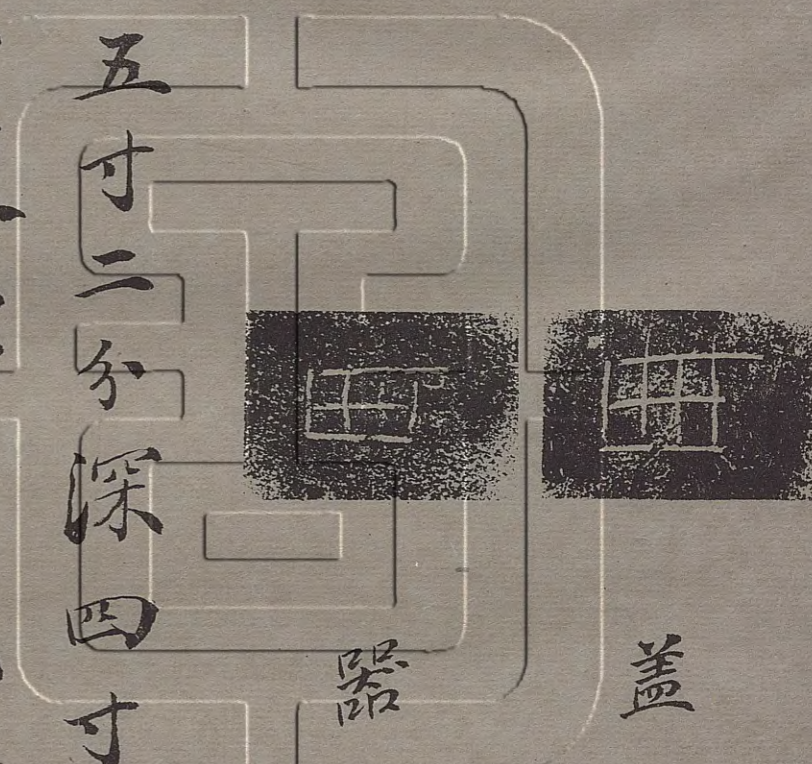 盖
器
五寸二分深四寸